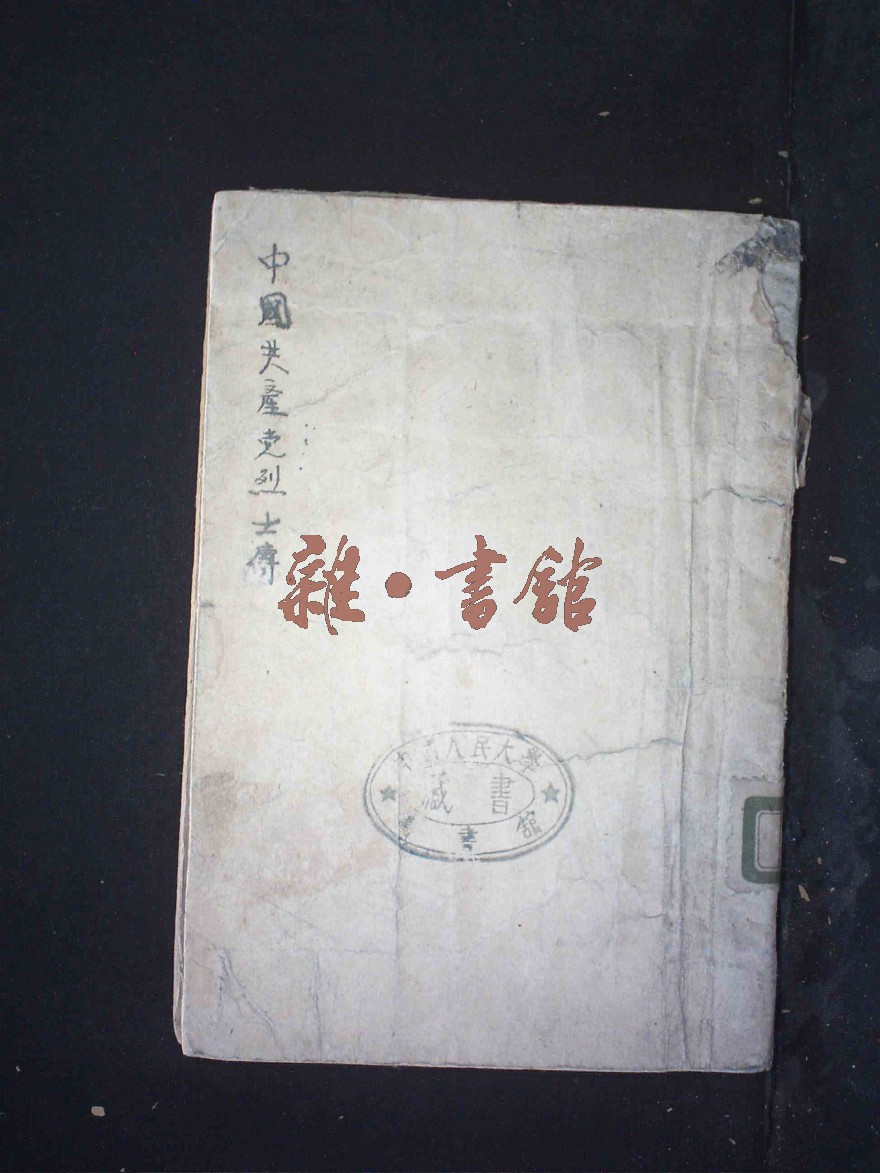 中國共產党烈士傳
雜·書館
中國人民大學
藏書
圖書館